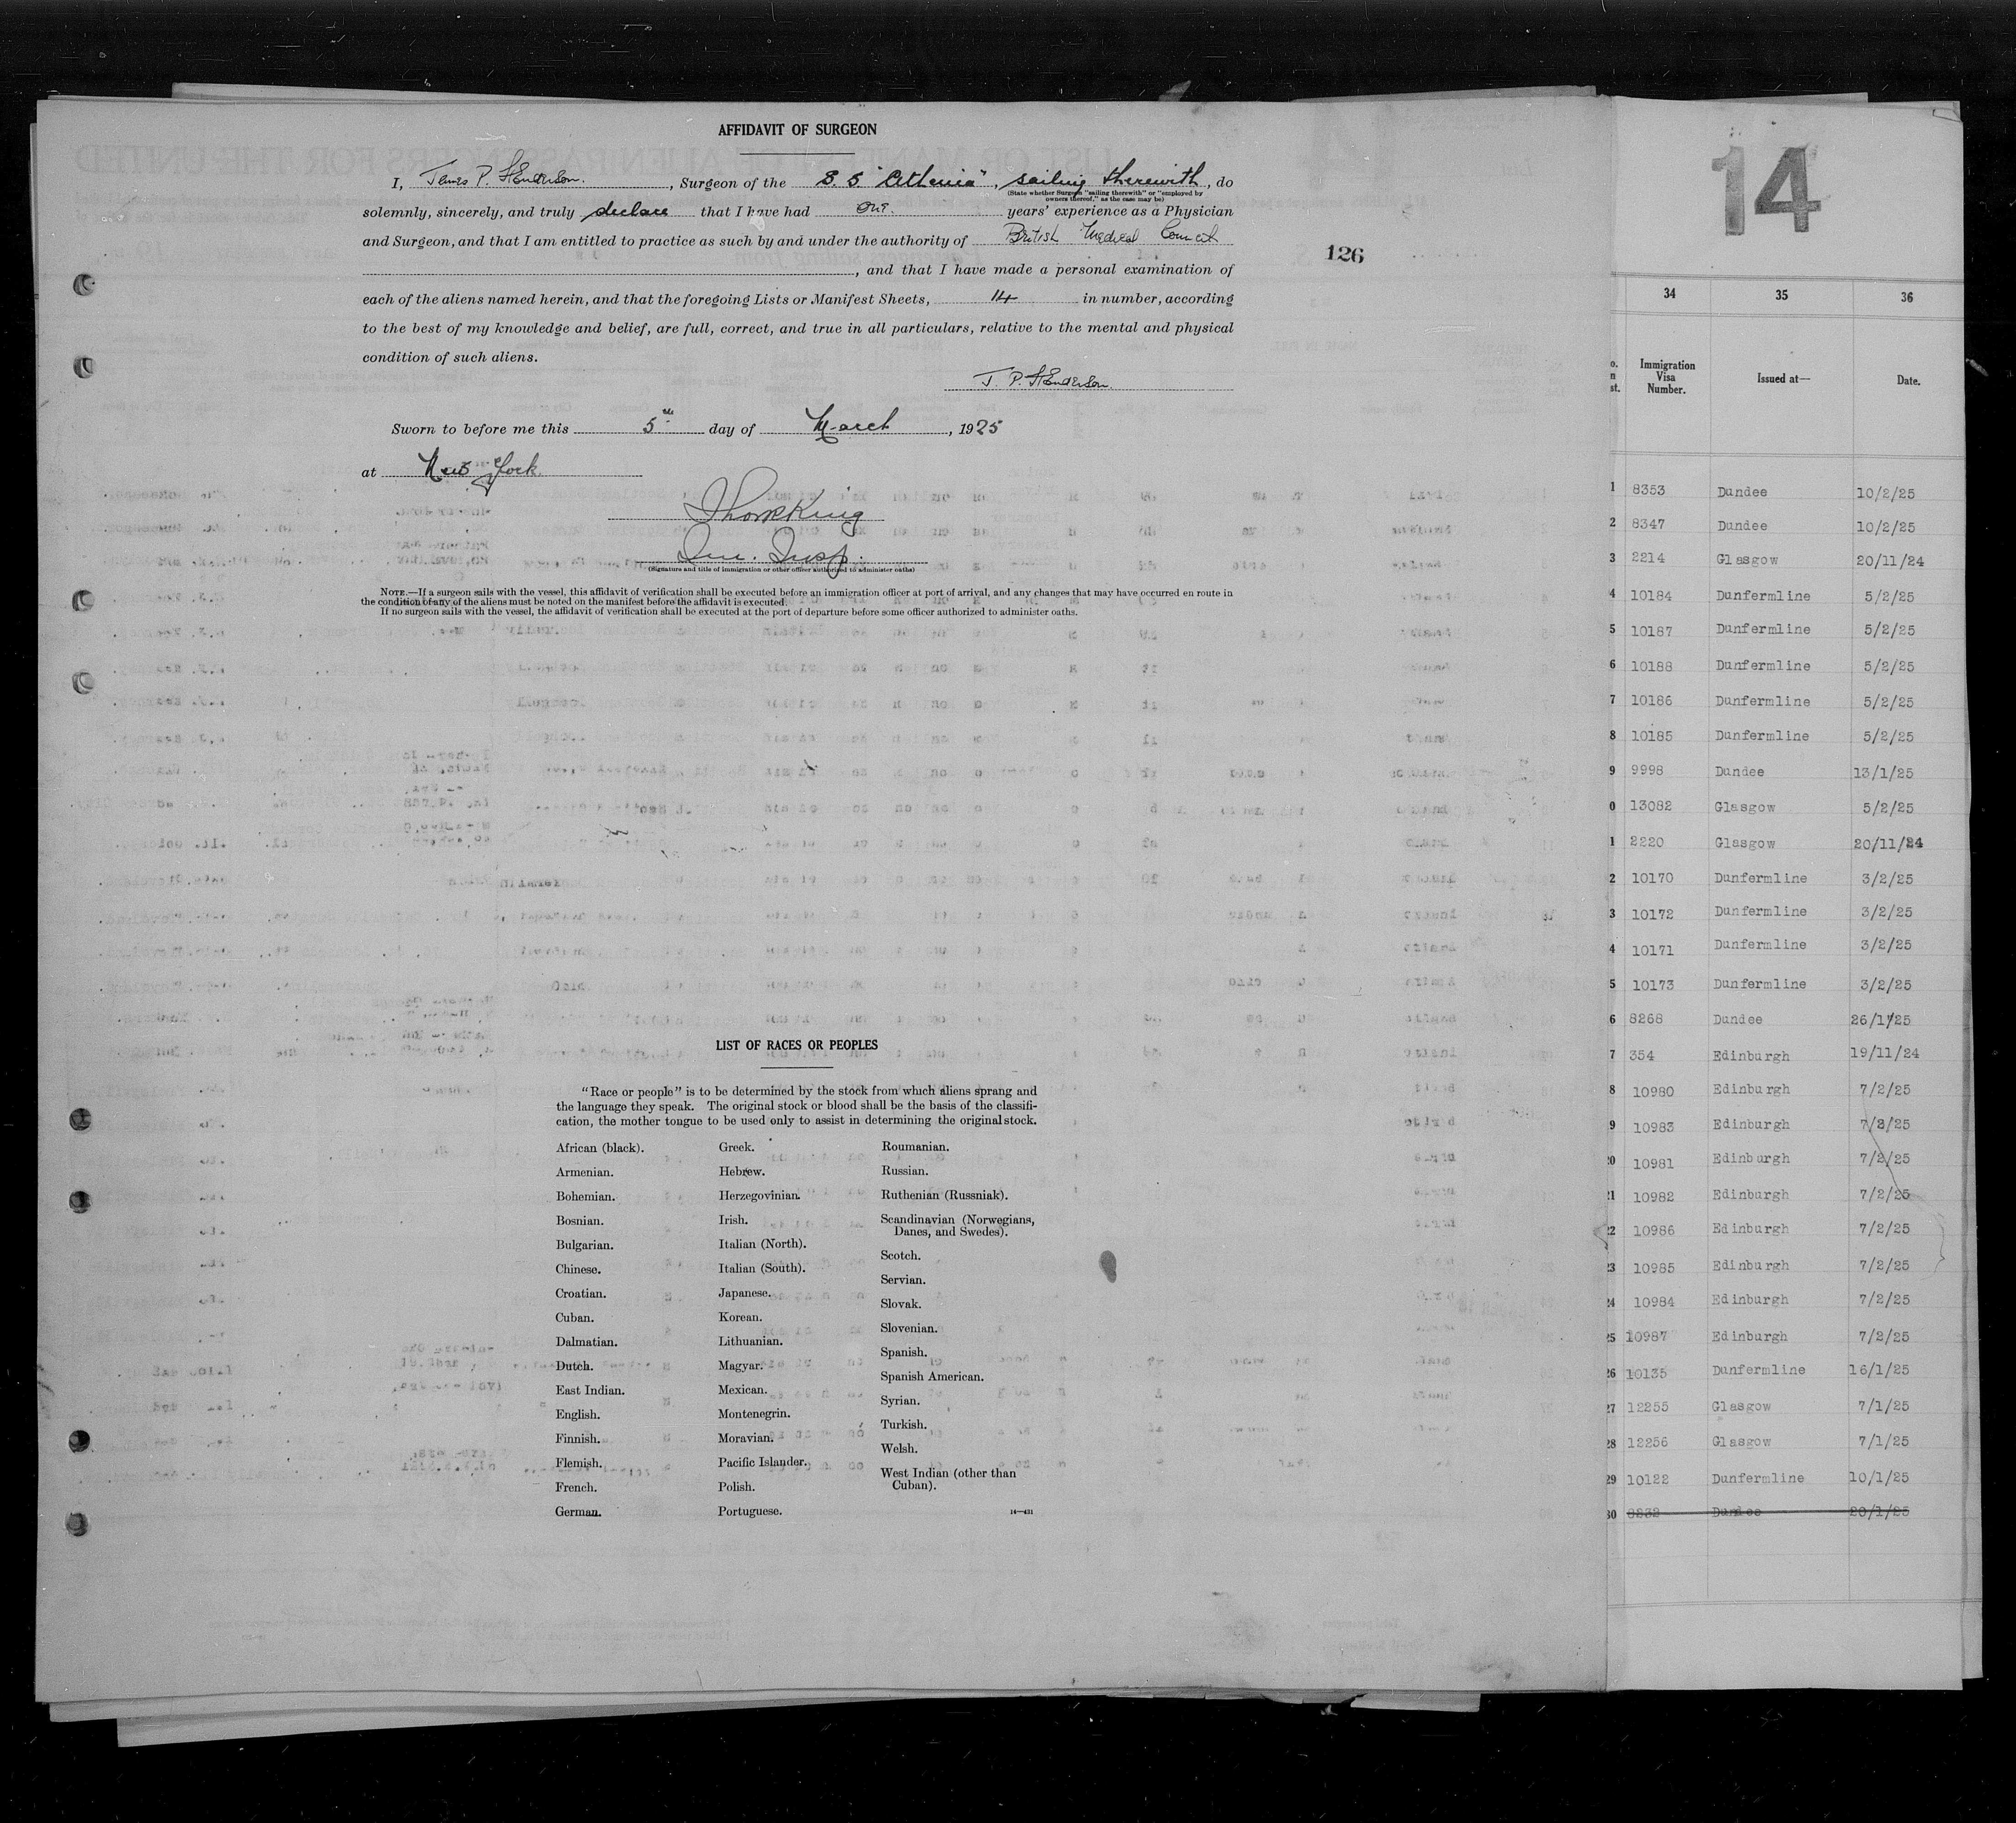 AFFIDAVIT OF SURGEON
I, James P. Henderson. , Surgeon of the S. S "Athenia" , sailing therewith , do
(State whether Surgeon "sailing therewith" or "employed by
owners thereof," as the case may be)
solemnly, sincerely, and truly declare that I have had one. years' experience as a Physician
and Surgeon, and that I am entitled to practice as such by and under the authority of British Medical Council
, and that I have made a personal examination of
each of the aliens named herein, and that the foregoing Lists or Manifest Sheets, 14 in number, according
to the best of my knowledge and belief, are full, correct, and true in all particulars, relative to the mental and physical
condition of such aliens.
J. P. Henderson.
Sworn to before me this 5th day of March , 1925
at New York
Imm. Insp.
(Signature and title of immigration or other officer authorized to administer oaths)
NOTE.—If a surgeon sails with the vessel, this affidavit of verification shall be executed before an immigration officer at port of arrival, and any changes that may have occurred en route in
the condition of any of the aliens must be noted on the manifest before the affidavit is executed.
If no surgeon sails with the vessel, the affidavit of verification shall be executed at the port of departure before some officer authorized to administer oaths.
126
LIST OF RACES OR PEOPLES
"Race or people" is to be determined by the stock from which aliens sprang and
the language they speak. The original stock or blood shall be the basis of the classifi-
cation, the mother tongue to be used only to assist in determining the original stock.
African (black).
Armenian.
Bohemian.
Bosnian.
Bulgarian.
Chinese.
Croatian.
Cuban.
Dalmatian.
Dutch.
East Indian.
English.
Finnish.
Flemish.
French.
German.
Greek.
Hebrew.
Herzegovinian.
Irish.
Italian (North).
Italian (South).
Japanese.
Korean.
Lithuanian.
Magyar.
Mexican.
Montenegrin.
Moravian.
Pacific Islander.
Polish.
Portuguese.
Roumanian.
Russian.
Ruthenian (Russniak).
Scandinavian (Norwegians,
Danes, and Swedes).
Scotch.
Servian.
Slovak.
Slovenian.
Spanish.
Spanish American.
Syrian.
Turkish.
Welsh.
West Indian (other than
Cuban).
14—431
14
34 35 36
Immigration
Visa
Number.
Issued at—
Date.
1 8353 Dundee 10/2/25
2 8347 Dundee 10/2/25
3 2214 Glasgow 20/11/24
4 10184 Dunfermline 5/2/25
5 10187 Dunfermline 5/2/25
6 10188 Dunfermline 5/2/25
7 10186 Dunfermline 5/2/25
8 10185 Dunfermline 5/2/25
9 9998 Dundee 13/1/25
0 13082 Glasgow 5/2/25
1 2220 Glasgow 20/11/24
2 10170 Dunfermline 3/2/25
3 10172 Dunfermline 3/2/25
4 10171 Dunfermline 3/2/25
5 10173 Dunfermline 3/2/25
6 8268 Dundee 26/1/25
7 354 Edinburgh 19/11/24
8 10980 Edinburgh 7/2/25
9 10983 Edinburgh 7/2/25
20 10981 Edinburgh 7/2/25
21 10982 Edinburgh 7/2/25
22 10986 Edinburgh 7/2/25
23 10985 Edinburgh 7/2/25
24 10984 Edinburgh 7/2/25
25 10987 Edinburgh 7/2/25
26 10135 Dunfermline 16/1/25
27 12255 Glasgow 7/1/25
28 12256 Glasgow 7/1/25
29 10122 Dunfermline 10/1/25
30 8232 Dundee 20/1/25